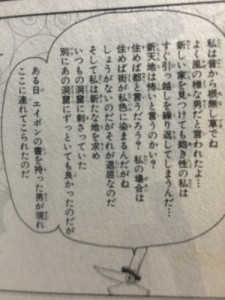 私は昔から根無し草でね
よく風の様な男だと言われたよ…
新しい家を見つけても飽き性の私は
すぐ引っ越しを繰り返してしまうんだ…
新天地は怖いと言うのかい？
住めば都と言うだろう？ 私の場合は
住めば街が私色に染まるんだがね
しょうがないのだがそれが退屈なのだ
そして私は新たな地を求め
いつもの洞窟に刺さっていた
別にあの洞窟にずっといても良かったのだが
ある日 エイボンの書を持った男が現れ
ここに連れてこられたのだ